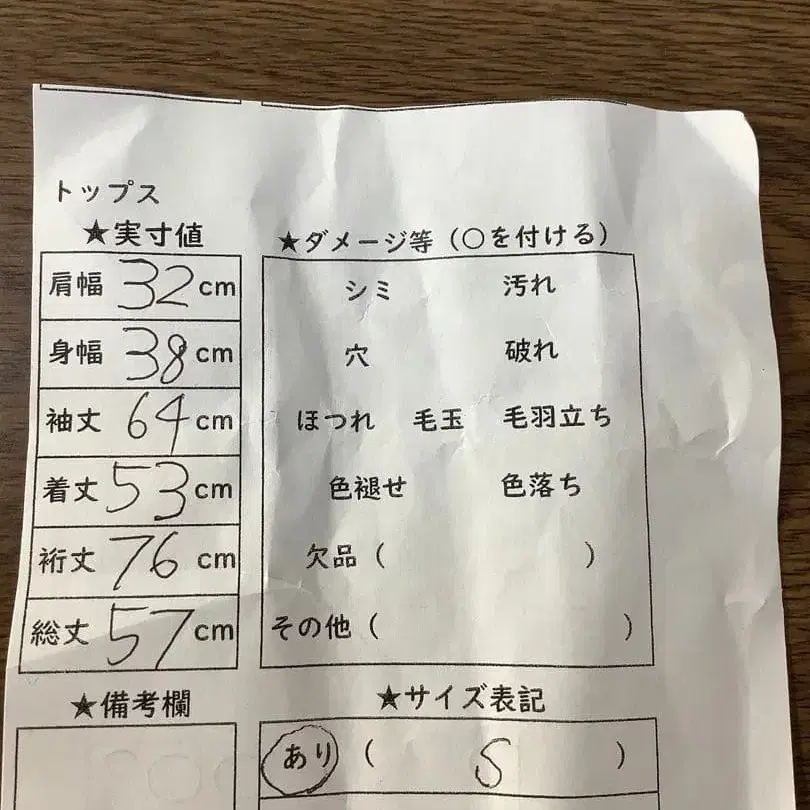 トップス
★実寸値
肩幅 32 cm
身幅 38 cm
袖丈 64 cm
着丈 53 cm
裄丈 76 cm
総丈 57 cm
★ダメージ等（○を付ける）
シミ 汚れ
穴 破れ
ほつれ 毛玉 毛羽立ち
色褪せ 色落ち
欠品（ ）
その他（ ）
★備考欄
★サイズ表記
あり（ S ）